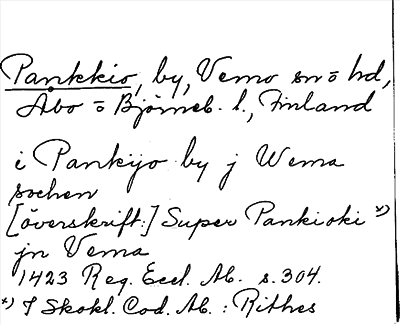 Pankkio, by, Vemo sn o hd,
Åbo o Björneb. l., Finland
i Pankijo by j Wema
sochen
[överskrift:] Super Pankioki *)
jn Vema
1423 Reg. Eccl. Ab. s. 304.
*) I Skokl. Cod. Ab. : Rithes